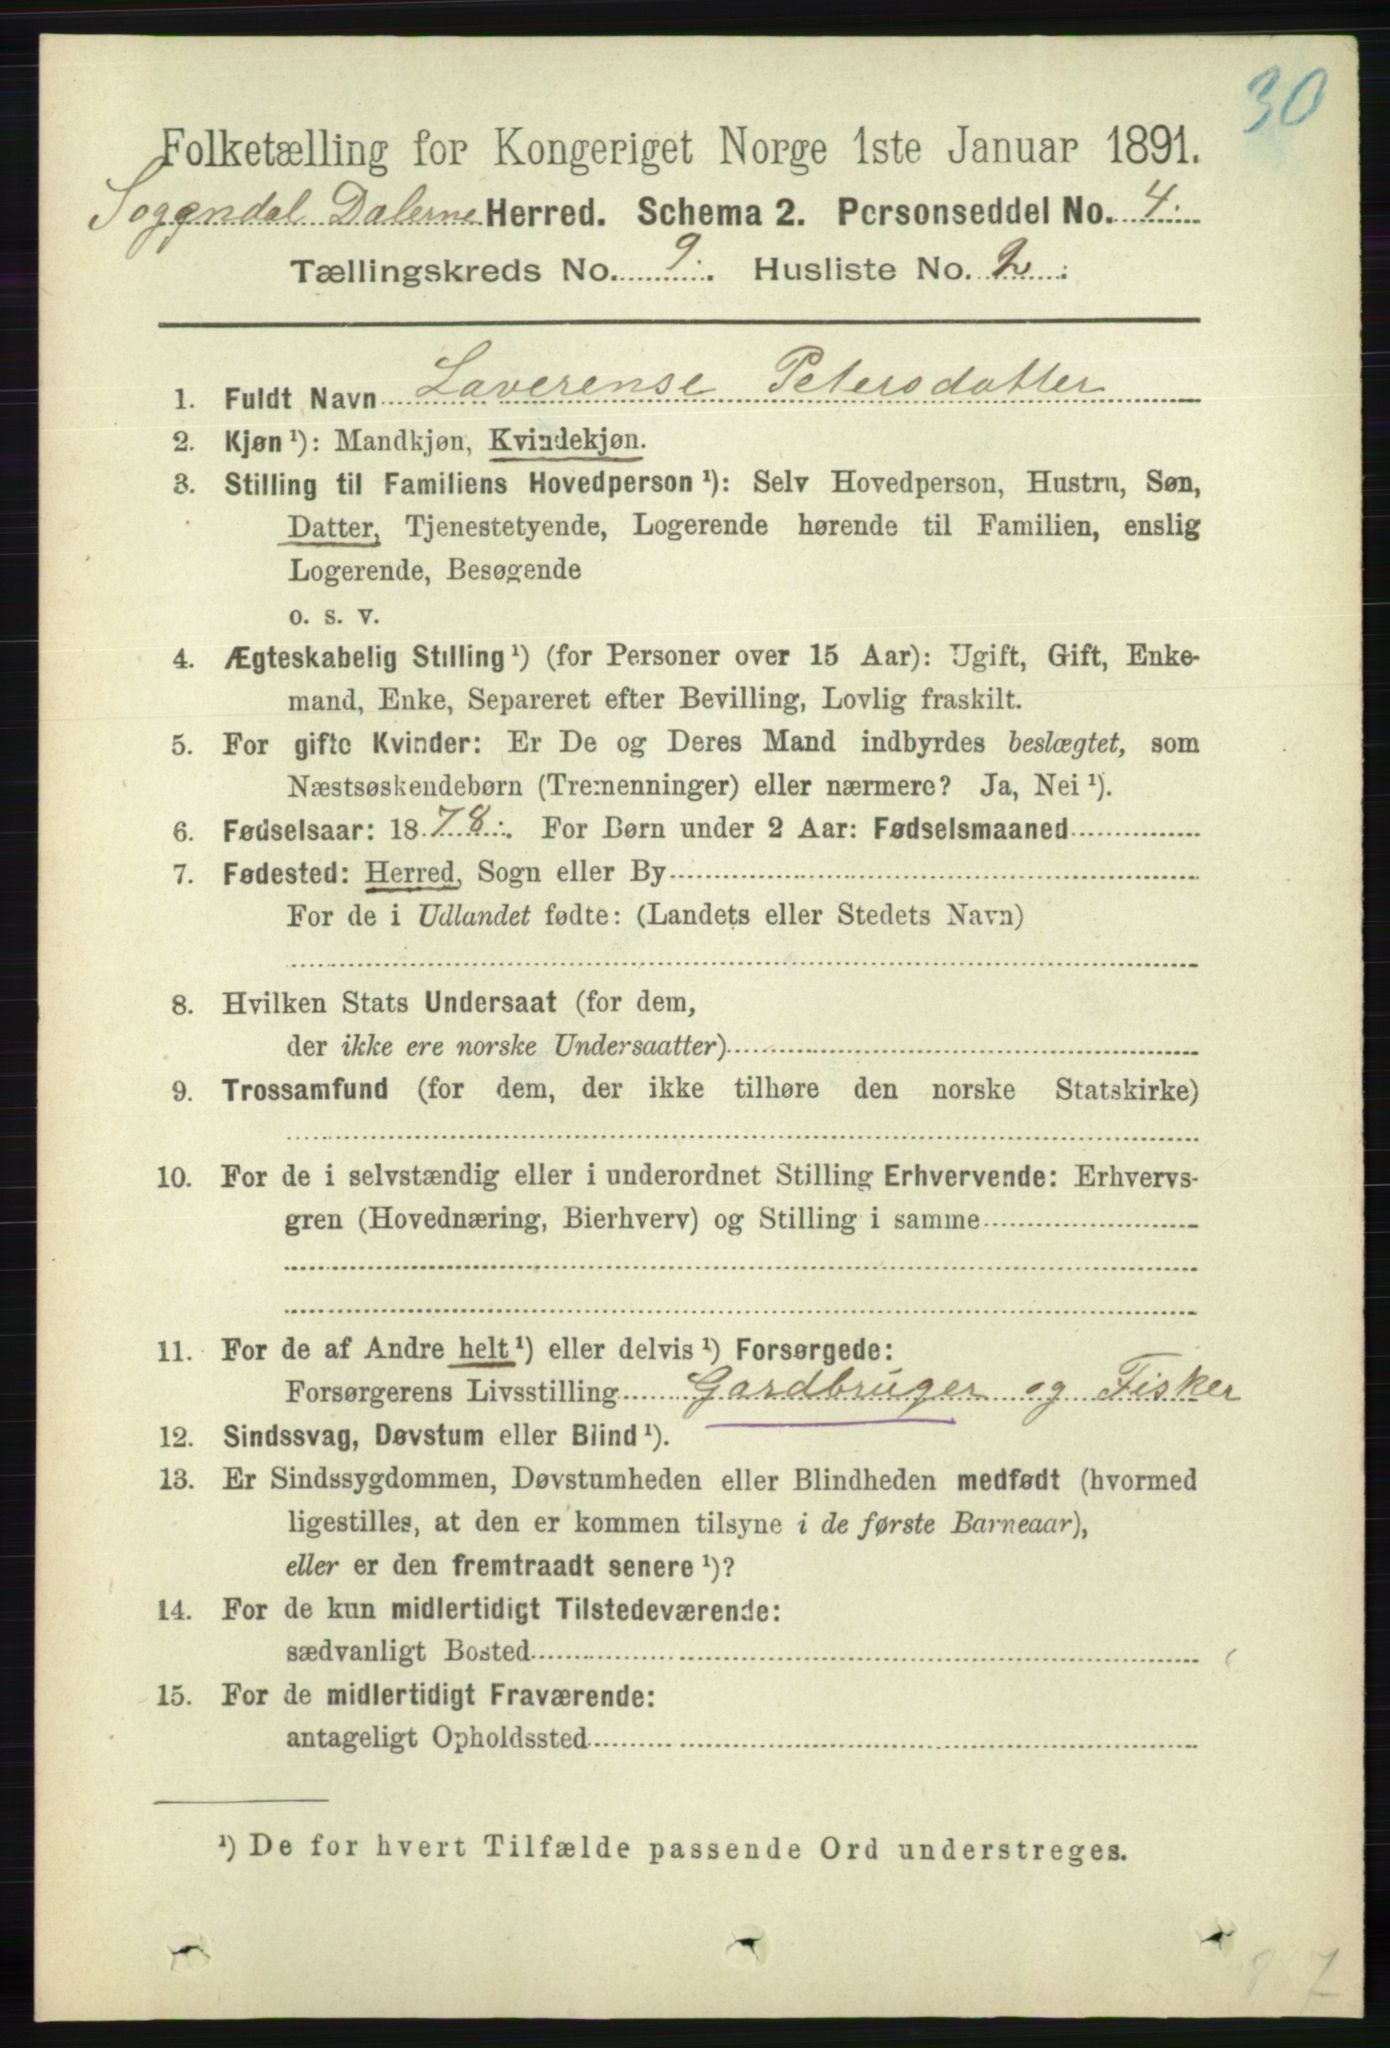 30
Folketælling for Kongeriget Norge 1ste Januar 1891.
Soggndal Dalerne Herred. Schema 2. Personseddel No. 4.
Tællingskreds No. 9. Husliste No. 2.
1. Fuldt Navn Laverense Petersdatter
2. Kjøn ¹): Mandkjøn, Kvindekjøn.
3. Stilling til Familiens Hovedperson ¹): Selv Hovedperson, Hustru, Søn,
Datter, Tjenestetyende, Logerende hørende til Familien, enslig
Logerende, Besøgende
o. s. v.
4. Ægteskabelig Stilling ¹) (for Personer over 15 Aar): Ugift, Gift, Enke-
mand, Enke, Separeret efter Bevilling, Lovlig fraskilt.
5. For gifte Kvinder: Er De og Deres Mand indbyrdes beslægtet, som
Næstsøskendebørn (Tremenninger) eller nærmere? Ja, Nei ¹).
6. Fødselsaar: 1878. For Børn under 2 Aar: Fødselsmaaned
7. Fødested: Herred, Sogn eller By
For de i Udlandet fødte: (Landets eller Stedets Navn)
8. Hvilken Stats Undersaat (for dem,
der ikke ere norske Undersaatter)
9. Trossamfund (for dem, der ikke tilhøre den norske Statskirke)
10. For de i selvstændig eller i underordnet Stilling Erhvervende: Erhvervs-
gren (Hovednæring, Bierhverv) og Stilling i samme
11. For de af Andre helt ¹) eller delvis ¹) Forsørgede:
Forsørgerens Livsstilling Gardbruger og Fisker
12. Sindssvag, Døvstum eller Blind ¹).
13. Er Sindssygdommen, Døvstumheden eller Blindheden medfødt (hvormed
ligestilles, at den er kommen tilsyne i de første Barneaar),
eller er den fremtraadt senere ¹)?
14. For de kun midlertidigt Tilstedeværende:
sædvanligt Bosted
15. For de midlertidigt Fraværende:
antageligt Opholdssted
¹) De for hvert Tilfælde passende Ord understreges.